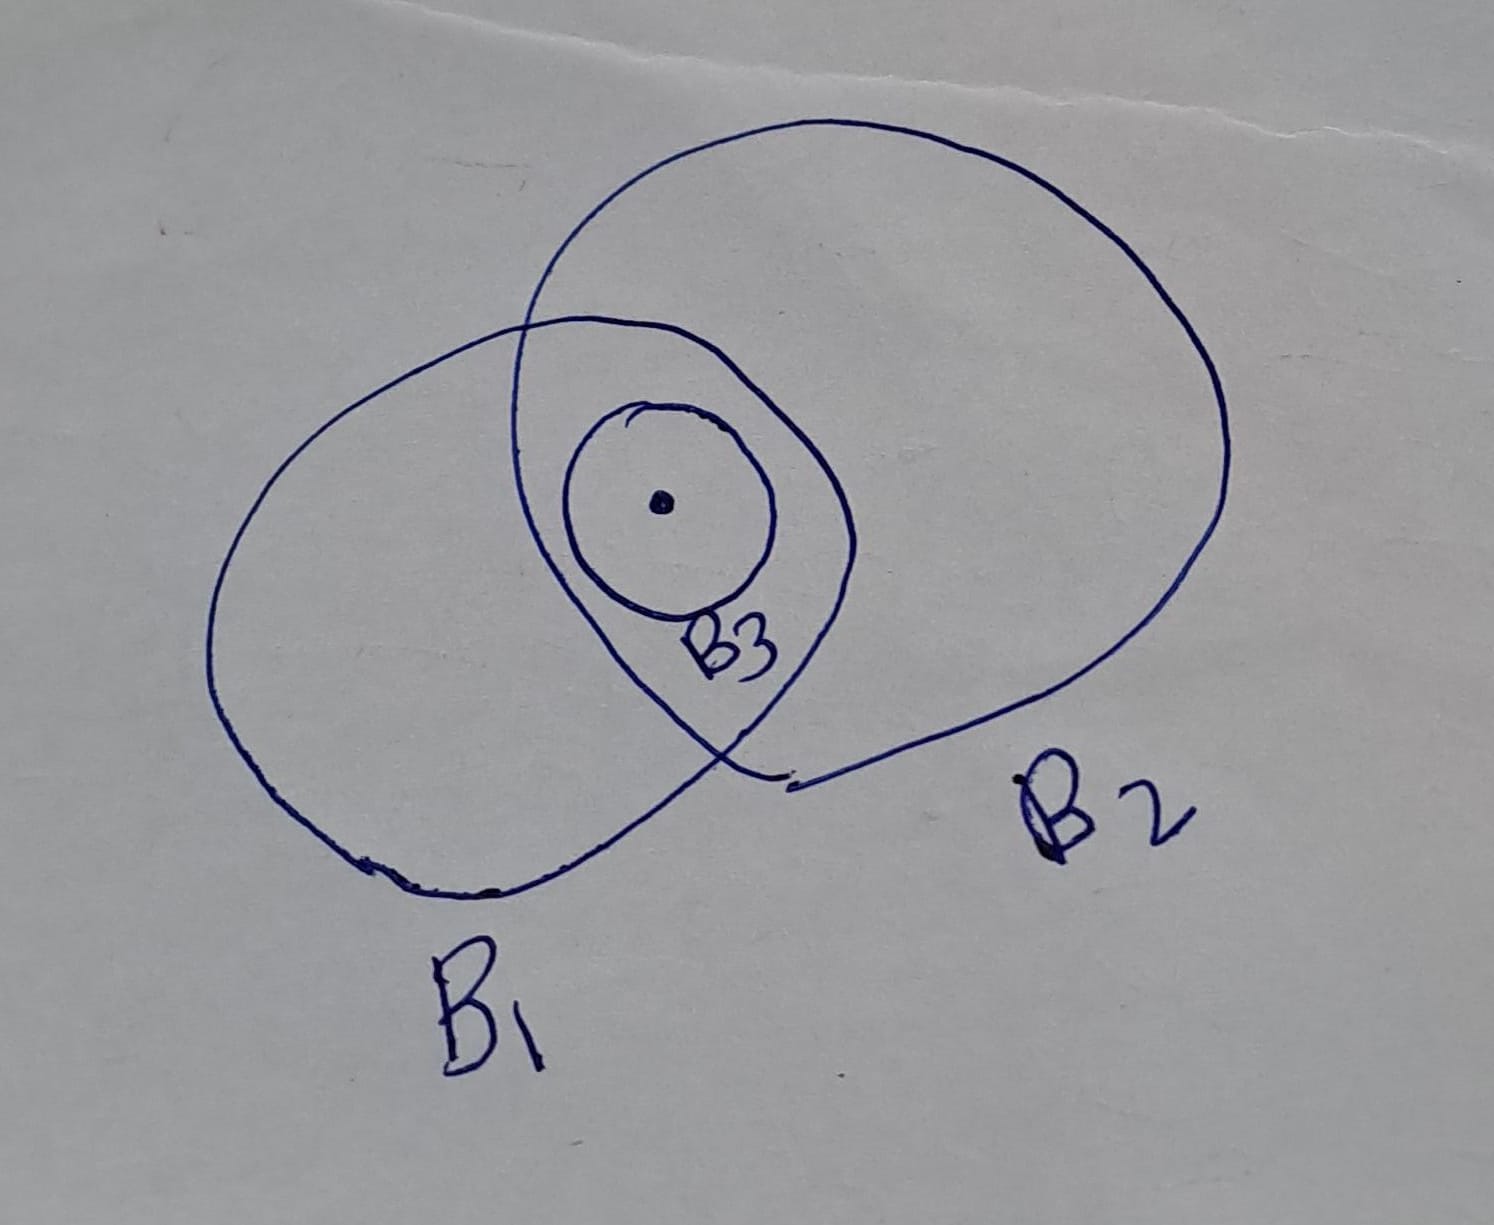 B3
B2
B1